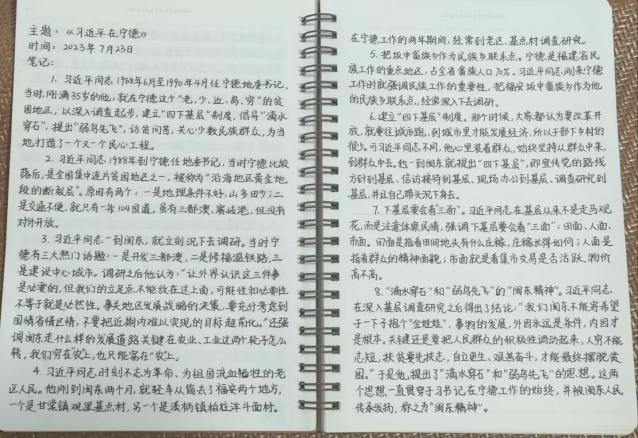 主题：《习近平在宁德》
时间：2023年7月23日
笔记：
1. 习近平同志1988年6月至1990年4月任宁德地委书记，
当时，刚满35岁的他，就在宁德这个"老、少、边、岛、穷"的贫
困地区，以深入调查起步，建立"四下基层"制度，倡导"滴水
穿石"，提出"弱鸟先飞"，访贫问苦，关心少数民族群众，为当
地打造了一个又一个民心工程。
2. 习近平同志1988年到宁德任地委书记，当时宁德比较
落后，是全国集中连片贫困地区之一，被称为"沿海地区黄金地
段的断裂层"。原因有两个：一是地理条件不好，山多田少；二
是交通不便，就只有一条104国道，虽有三都澳、赛岐港，但没有
对外开放。
3. 习近平同志一到闽东，就立刻沉下去调研。当时宁
德有三大热门话题：一是开发三都澳，二是修福温铁路，三
是建设中心城市。调研之后他认为："让外界认识这三件事
是必要的，但我们的立足点不能放在这上面，可能性和必要性
不等于就是必然性。事关地区发展战略的决策，要充分考虑到
国情省情区情，不要把近期内难以实现的目标超前化。"还强
调闽东走什么样的发展道路关键在农业、工业这两个轮子怎么
转，我们穷在"农"上，也只能富在"农"上。
4. 习近平同志时刻不忘为革命、为祖国流血牺牲的老
区人民。他刚到闽东两个月，就轻车从简去了福安两个地方，
一个是甘棠镇观里基点村，另一个是溪柄镇柏柱洋斗面村。
在宁德工作的两年期间，经常到老区、基点村调查研究。
5. 把坂中畲族乡作为民族乡联系点。宁德是福建省民
族工作的重点地区，占全省畲族人口70%。习近平同志刚来宁德
工作时就强调民族工作的重要性，把福安坂中畲族乡作为他
的民族乡联系点，经常深入下去调研。
6. 建立"四下基层"制度。那个时候，大家都认为要改革开
放，就要往城市跑，到城市里才能发展经济，所以干部下乡村的
很少。可习近平同志不同，他心里装着群众，始终坚持从群众中来，
到群众中去。他一到闽东就提出"四下基层"，即宣传党的路线
方针到基层、信访接待到基层、现场办公到基层、调查研究到
基层，并且自己带头沉下身去。
7. 下基层要会看"三面"。习近平同志在基层从来不是走马观
花，而是注重体察民情，强调下基层要会看"三面"：田面、人面、
市面。田面是指看田间地头有什么庄稼，庄稼长得如何；人面是
指看群众的精神面貌；市面就是看集市交易是否活跃、物价
高不高。
8. "滴水穿石"和"弱鸟先飞"的"闽东精神"。习近平同志
在深入基层调查研究之后得出3结论："我们闽东不能寄希望
于一下子抱个"金娃娃"，事物的发展，外因永远是条件，内因才
是根本，关键还是要把人民群众的积极性调动起来，人穷不能
志短，扶贫要先扶志，自立更生、艰苦奋斗，才能最终摆脱贫
困。"于是他提出了"滴水穿石"和"弱鸟先飞"的思想。这两
个思想一直贯穿于习书记在宁德工作的始终，并被闽东人民
传承发扬，称之为"闽东精神"。